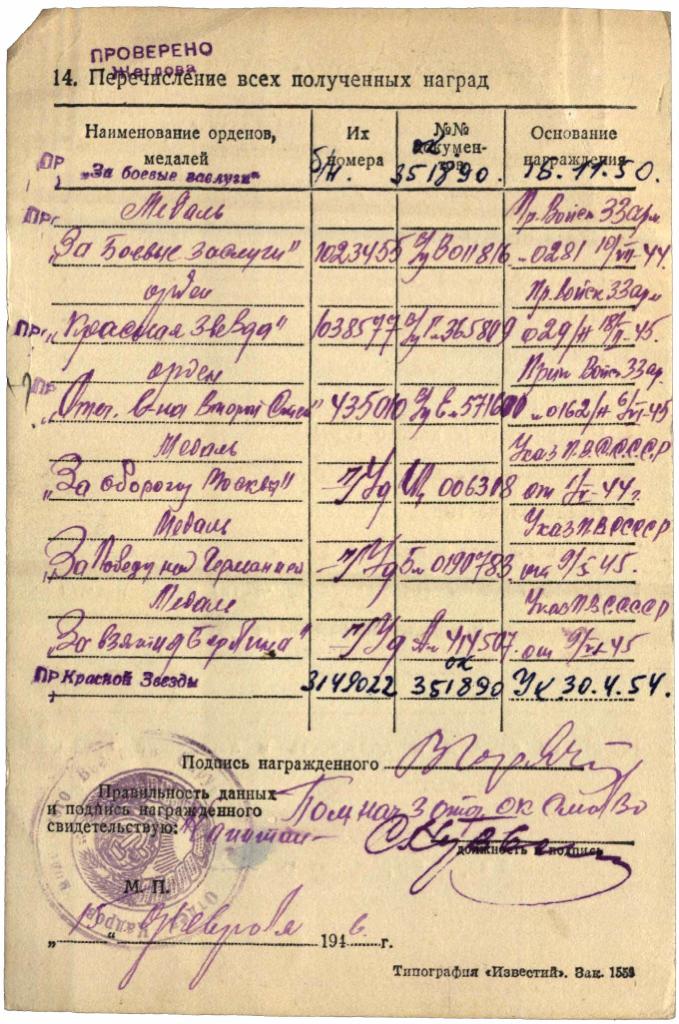 ПРОВЕРЕНО
Жеглова
14. Перечисление всех полученных наград
Наименование орденов, медалей
Их номера
№№ документов
Основание награждения
ПР „За боевые заслуги“ б/н. ок 351890. 15.11.50.
ПР Медаль Пр. Войск 33 арм
„За Боевые заслуги" 1023455 Уд В 011816 0281 10/VII-44.
орден Пр. войск 33 арм
ПР „Красная Звезда" 1038577 365809 029/н 18/II-45.
орден Прик Войск 33 ар.
ПР „Отеч. в-на Второй Степ" 435010 571600 0162/н 6/VI-45
Медаль Указ П.В.С.СССР
„За оборону Москвы" н/Уд 006318 от 1/V-44г.
Медаль Указ П.В.СССР
„За Победу над Германией н/Уд 0190783. от 9/5 45.
Медаль Указ П.В.СССР
„За взятие Берлина" н/Уд А 414507. от 9/VI-45
ПР Красной Звезды 3149022 ок 351890 Ук 30.4.54.
Подпись награжденного
Правильность данных
и подпись награжденного
свидетельствую:
Пом нач 3 отд ок
Капитан
должность и подпись
М. П.
„15“ февраля 1946 г.
Типография «Известий». Зак. 1553